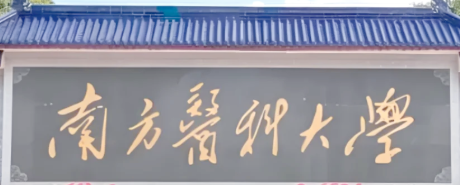 南方醫科大學